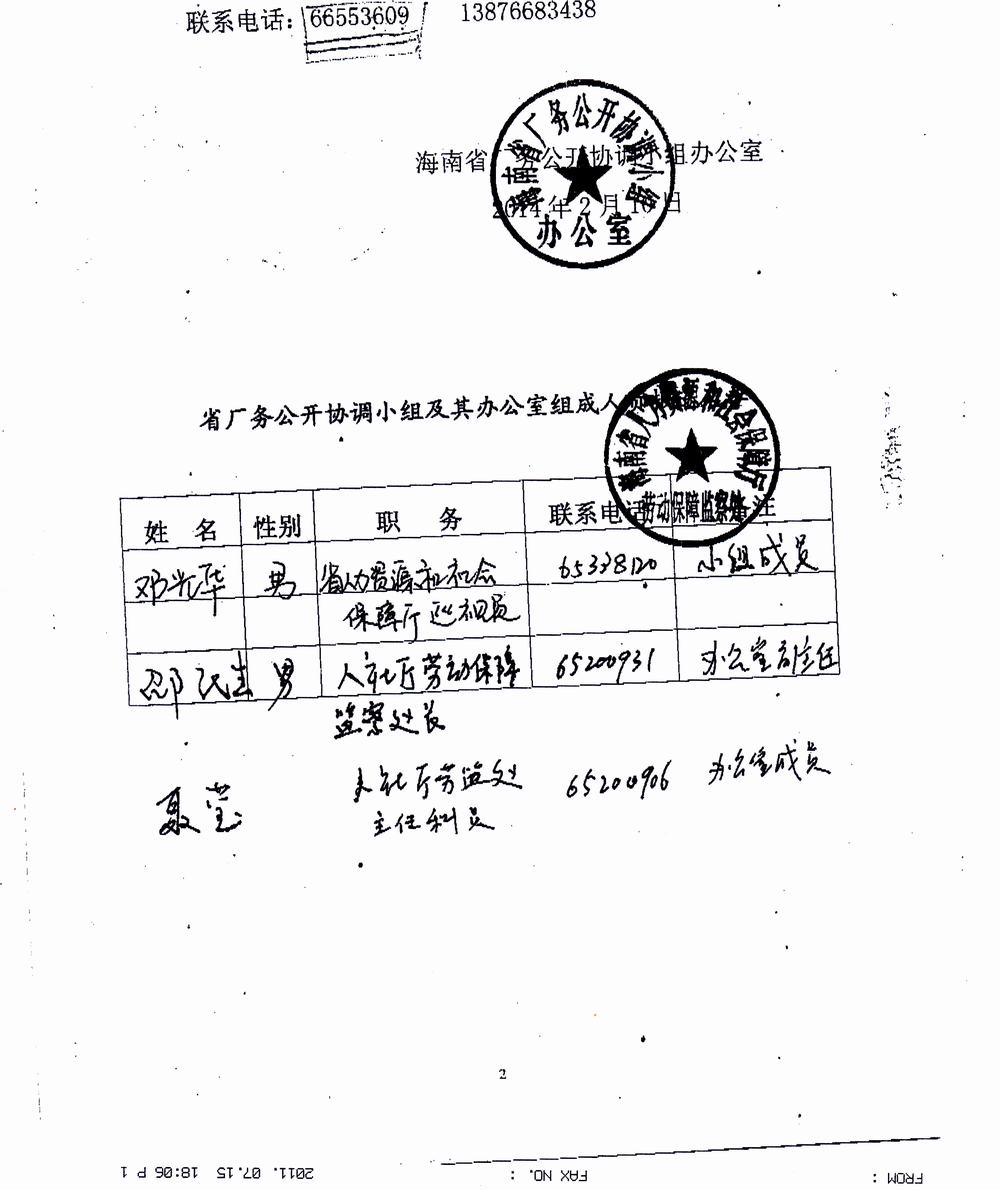 联系电话：66553609 13876683438
海南省厂务公开协调小组办公室
2014年2月10日
海南省厂务公开协调小组
办公室
省厂务公开协调小组及其办公室组成人员
海南省人力资源和社会保障厅
劳动保障监察处
姓 名 性别 职 务 联系电话 备注
邓光华 男 省人力资源和社会 65338120 小组成员
保障厅巡视员
邵民生 男 人社厅劳动保障 65200931 办公室副主任
监察处长
聂莹 人社厅劳监处 65200906 办公室成员
主任科员
2
FROM : FAX NO. : 2011. 07. 15 18:06 P 1